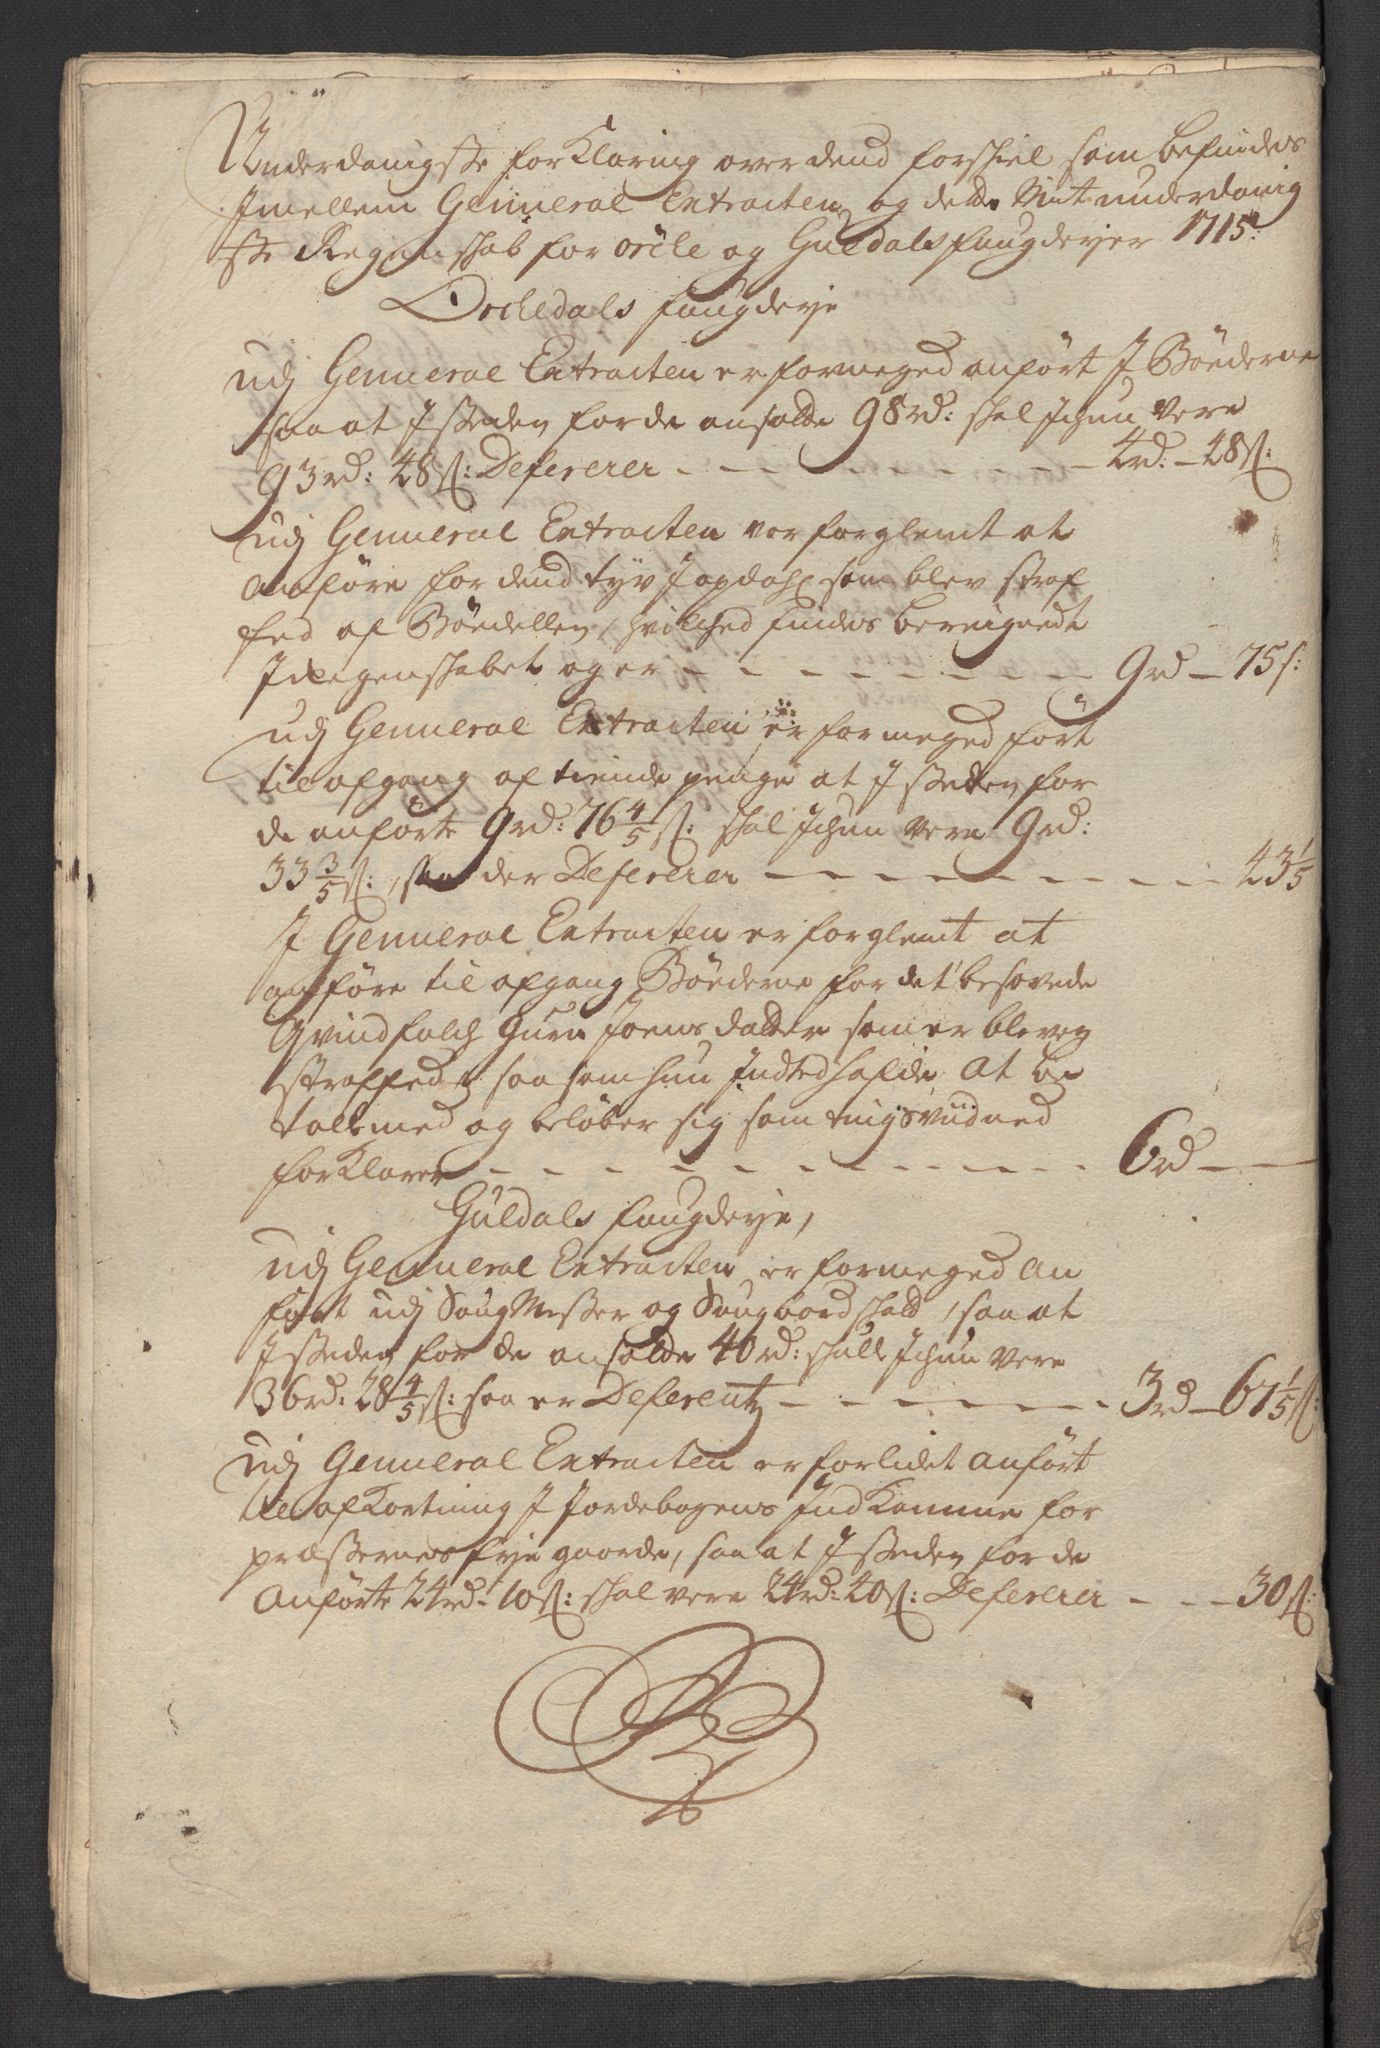 Underdanigste forKlaring over dend forskiel som befindes
Jmellem Genneral Extracten, og dette Mit underdanig
ste Regenskab for orcle og Guldals faugderjer 1715:
Orcledals faugderje
udj Genneral Extracten er formeged anført J Bøederne
saa at J steden for de ansatte 98rd: skal Ichun vere
93rd: 48s: Defererer - - - 4rd: - 48s:
udj Genneral Extracten var forglemt at
anføre for dend tyv J opdahl som blev straf
fed af Bødellen, hvilched findes bereignedt
J Regenskabet og er - - - 9rd - 75s:
udj Genneral Extracten er formeged fört
til afgang af tiende penge at J steden for
de anførte 9rd: 76 4/5 s: skal Ichun vere 9rd:
33 3/5 s:, saa der Defererer - - - 43 1/5
J Genneral Extracten er forglemt at
anføre til afgang Bøderne for det besovede
Qvindfolch Guru Joens datter som er bleven
straffed, saa som hun Indted hafde at be
tale med og beløber sig som tingsvidned
forKlarer - - - 6rd -
Guldals faugderje,
udj Genneral Extracten er formeged an
fört udj Saug Mester og Saugbordskatt, saa at
J steden for de ansatte 40rd: skulle Ichun vere
36rd: 28 4/5 s: saa er Deferentz - - - 3rd - 67 1/5 s:
udj Genneral Extracten er forlidet anfört
til afKortning J Jordebogens IndKomme for
præsternes frje gaarde, saa at J steden for de
anførte 24rd: 10s: skal vere 24rd: 40s: Defererer - - - 30s: